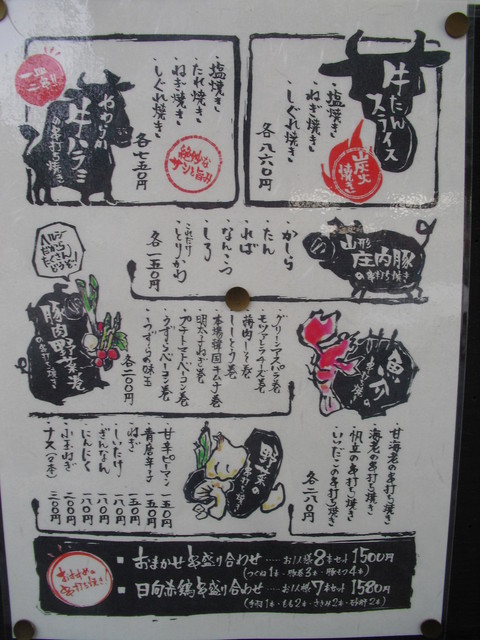 牛たん
スライス
炭火
焼き
・塩焼き
・ねぎ焼き
・しぐれ焼き
各八六〇円
一皿
二本盛り
やわらか
牛ハラミ
の串打ち焼き
・塩焼き
・たれ焼き
・ねぎ焼き
・しぐれ焼き
各七五〇円
絶妙な
サシと旨み
山形
庄内豚
の串打ち焼き
・かしら
・たん
・ればー
・なんこつ
・しろ
・これだけ
とりかわ
各一五〇円
ヘルシー
だから
たくさん
どうぞ!
豚肉野菜巻
の串打ち焼き
・グリーンアスパラ巻
・モッツァレラチーズ巻
・鶏肉しそ巻
・ししとう巻
・本場韓国キムチ巻
・明太子ねぎ巻
・プチトマトベーコン巻
・うずらベーコン巻
・うずらの味玉
各二〇〇円
魚介
の串打ち焼き
・甘海老の串打ち焼き
・海老の串打ち焼き
・帆立の串打ち焼き
・いいだこの串打ち焼き
各二八〇円
野菜の
串打ち焼き
・甘辛ピーマン 一五〇円
・青唐辛子 一五〇円
・ねぎ 一五〇円
・しいたけ 一八〇円
・ぎんなん 一八〇円
・にんにく 一八〇円
・小玉ねぎ 二〇〇円
・ナス(2本) 三〇〇円
おすすめの
串打ち焼き!
・おまかせ串盛り合わせ……お1人様8本セット1500円
(つくね1本・豚巻3本・豚モツ4本)
・日向赤鶏串盛り合わせ……お1人様7本セット1580円
(手羽1本・もも2本・ささみ2本・砂肝2本)